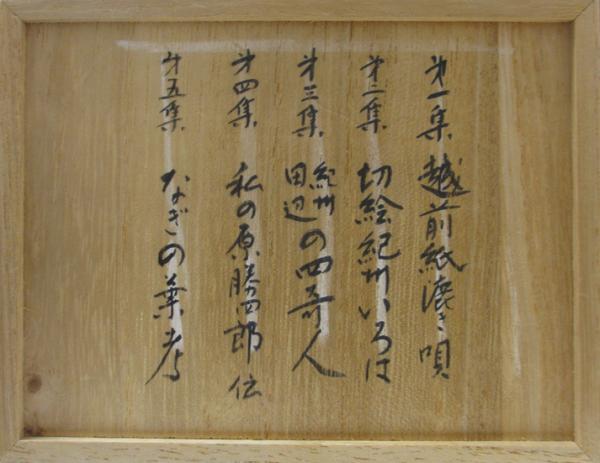 第一集 越前紙漉き唄
第二集 切絵紀州いろは
第三集 紀州田辺の四奇人
第四集 私の原勝四郎伝
第五集 なぎの葉考